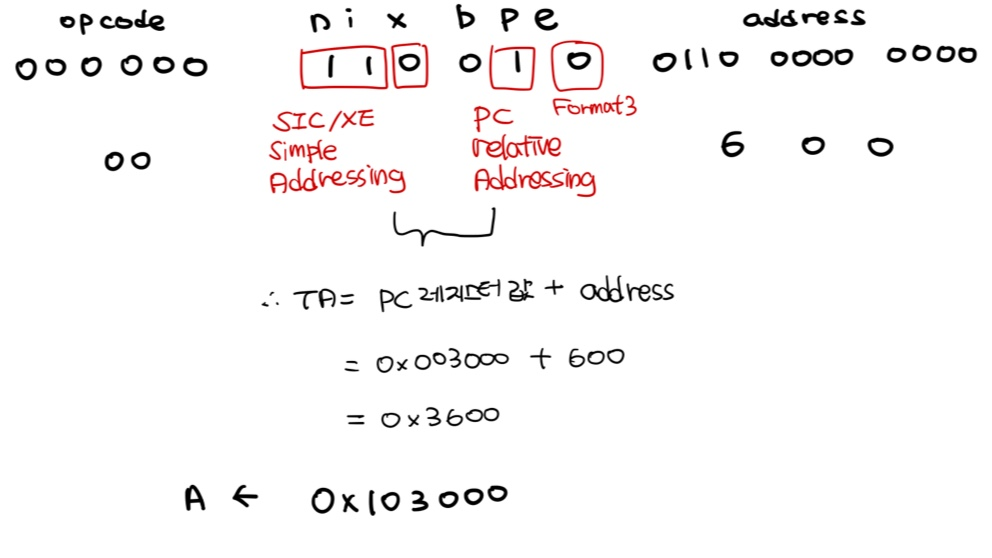 opcode n i x b p e address
000000 110 0 1 0 0110 0000 0000
SIC/XE PC Format3
Simple relative
Addressing Addressing
00 6 0 0
∴ TA= PC 레지스터 값 + address
= 0x003000 + 600
= 0x3600
A ← 0x103000